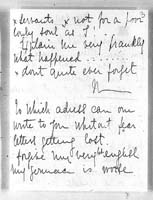 3
x servants x not for a poor
only soul as I ...
Explain me very frankly
what happened ........
x dont quite ever forget
N
To which adress can one
write to you without fear
letters getting lost.
forgive my very english
my german is worse